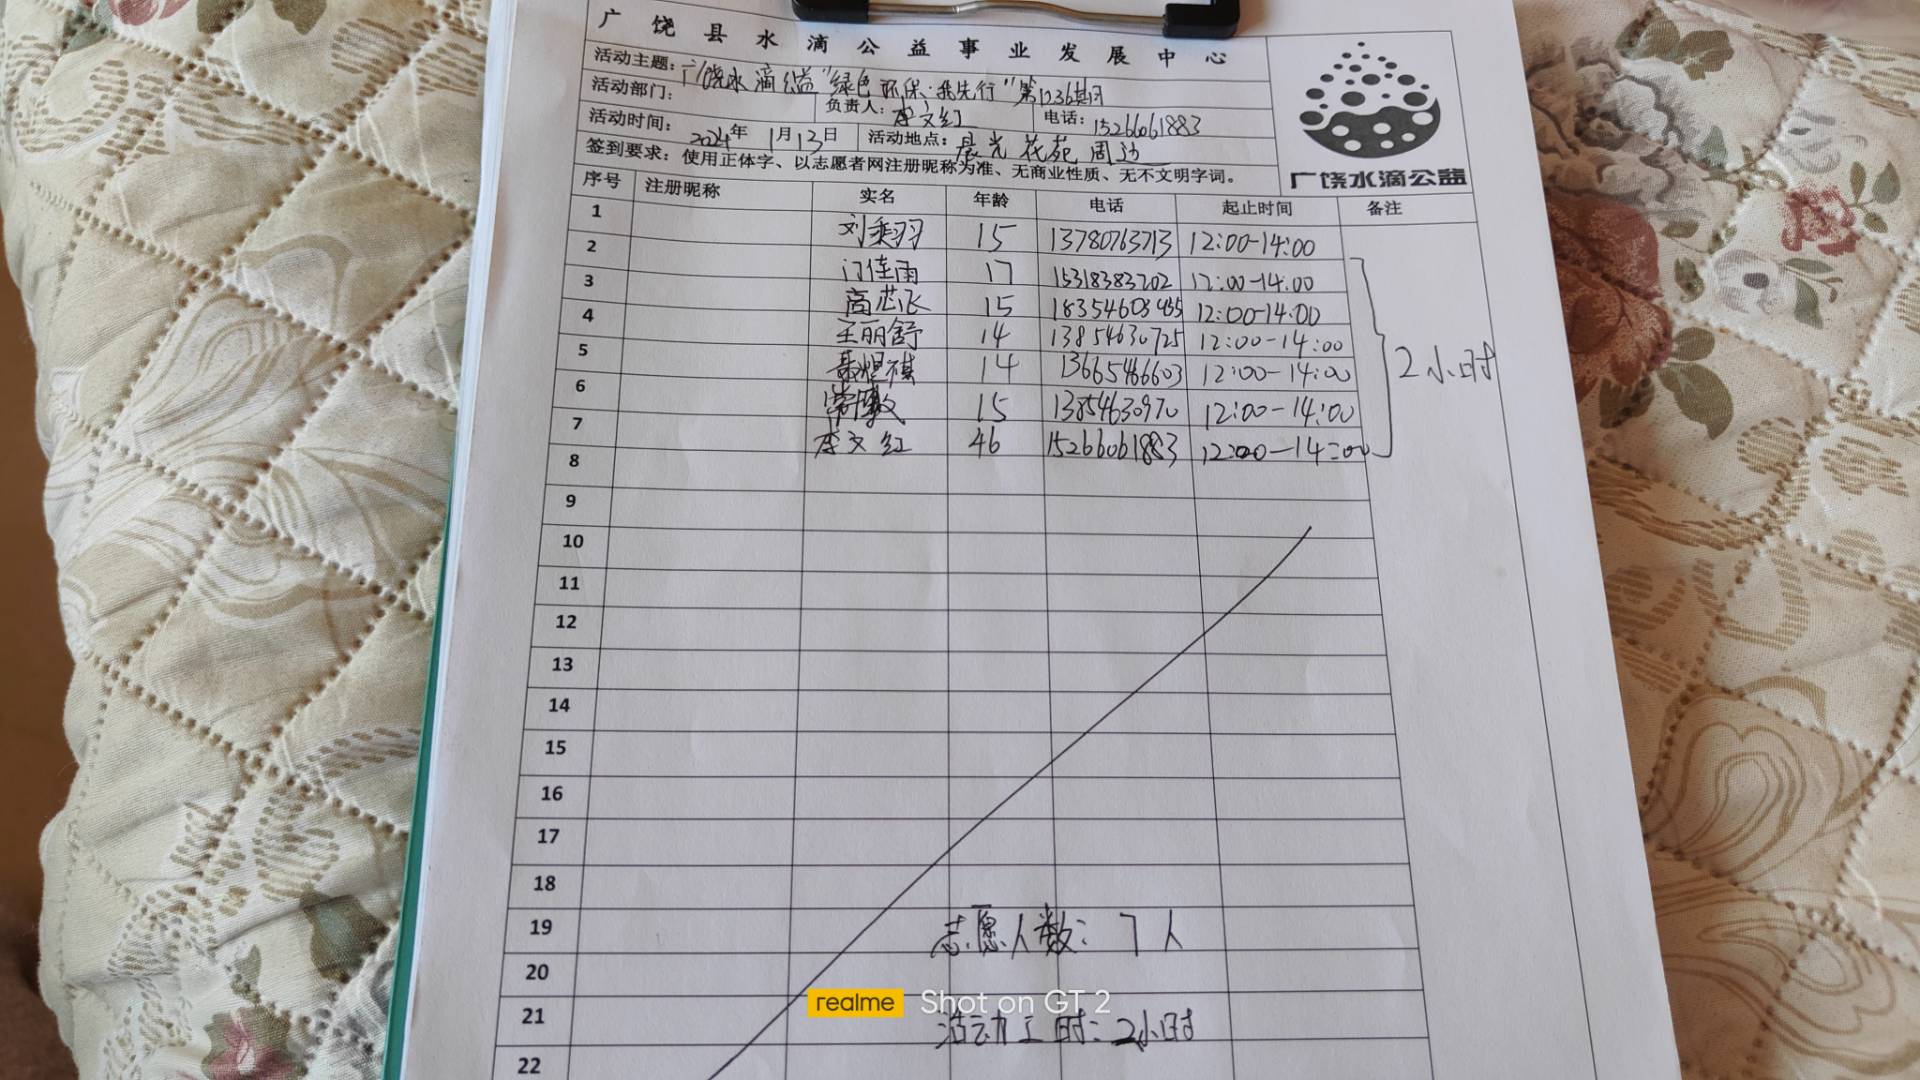 广饶县水滴公益事业发展中心
活动主题：广饶水滴公益“绿色环保·我先行”第1236期
活动部门： 负责人：李文红 电话：15266061883
活动时间：2024年1月13日 活动地点：晨光花苑周边
签到要求：使用正体字、以志愿者网注册昵称为准、无商业性质、无不文明字词。
广饶水滴公益
序号 注册昵称 实名 年龄 电话 起止时间 备注
1 刘乘羽 15 13780763713 12:00-14:00
2 门佳雨 17 15318383202 12:00-14:00
3 商芯飞 15 18354608455 12:00-14:00
4 王丽舒 14 13854630725 12:00-14:00
5 聂煜祺 14 13665466603 12:00-14:00
6 常 15 13854630970 12:00-14:00
7 李文红 46 15266061883 12:00-14:00
2小时
8
9
10
11
12
13
14
15
16
17
18
19
20
21
22
志愿人数：7人
realme Shot on GT 2
活动工时：2小时